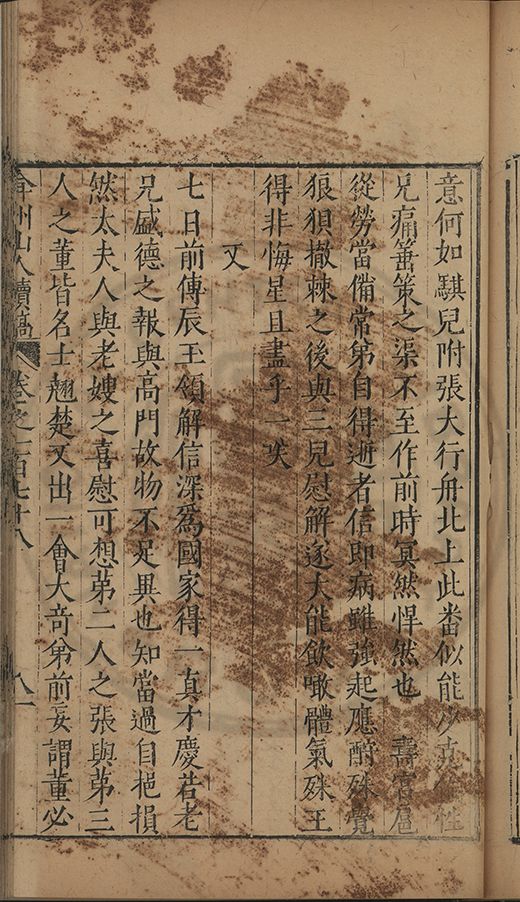 意何如騏兒附張大行舟北上此番似能少其性
兄痛箠策之渠不至作前時冥然悍然也 壽官扈
從勞當備常第自得逝者信即病雖強起應酧殊覺
狼狽撤棘之後與三兒慰解遂大能飲噉體氣殊王
得非悔星且盡乎一笑
又
七日前傳辰玉領解信深為國家得一真才慶若老
兄盛德之報與高門故物不足異也知當過自挹損
然太夫人與老嫂之喜慰可想第二人之張與第三
人之董皆名士翹楚又出一會大奇第前妄謂董必
弇州山人續稿 卷之一百七十八 八